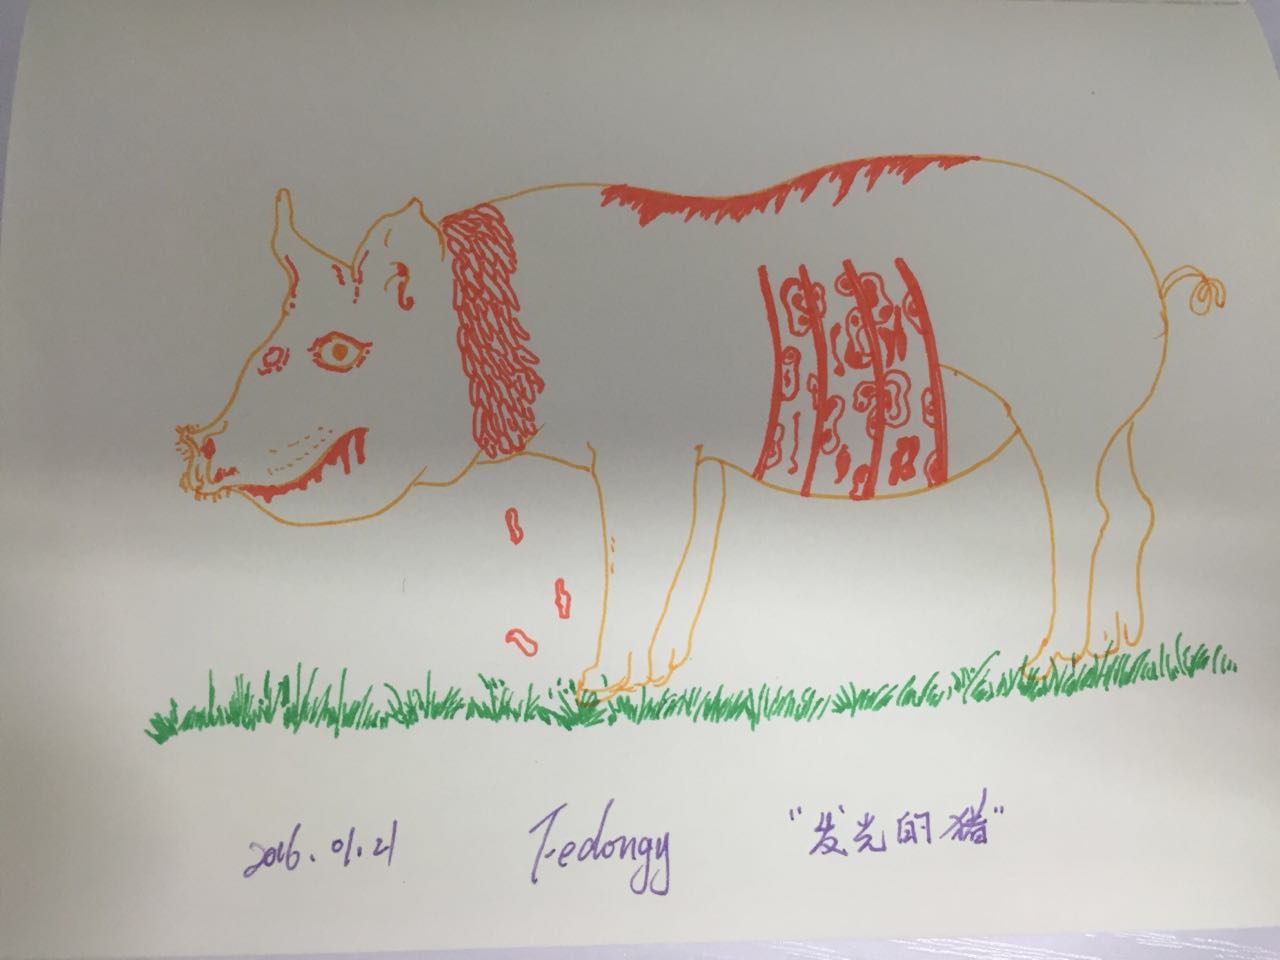 2016.01.21 Fedongy "发光的猪"